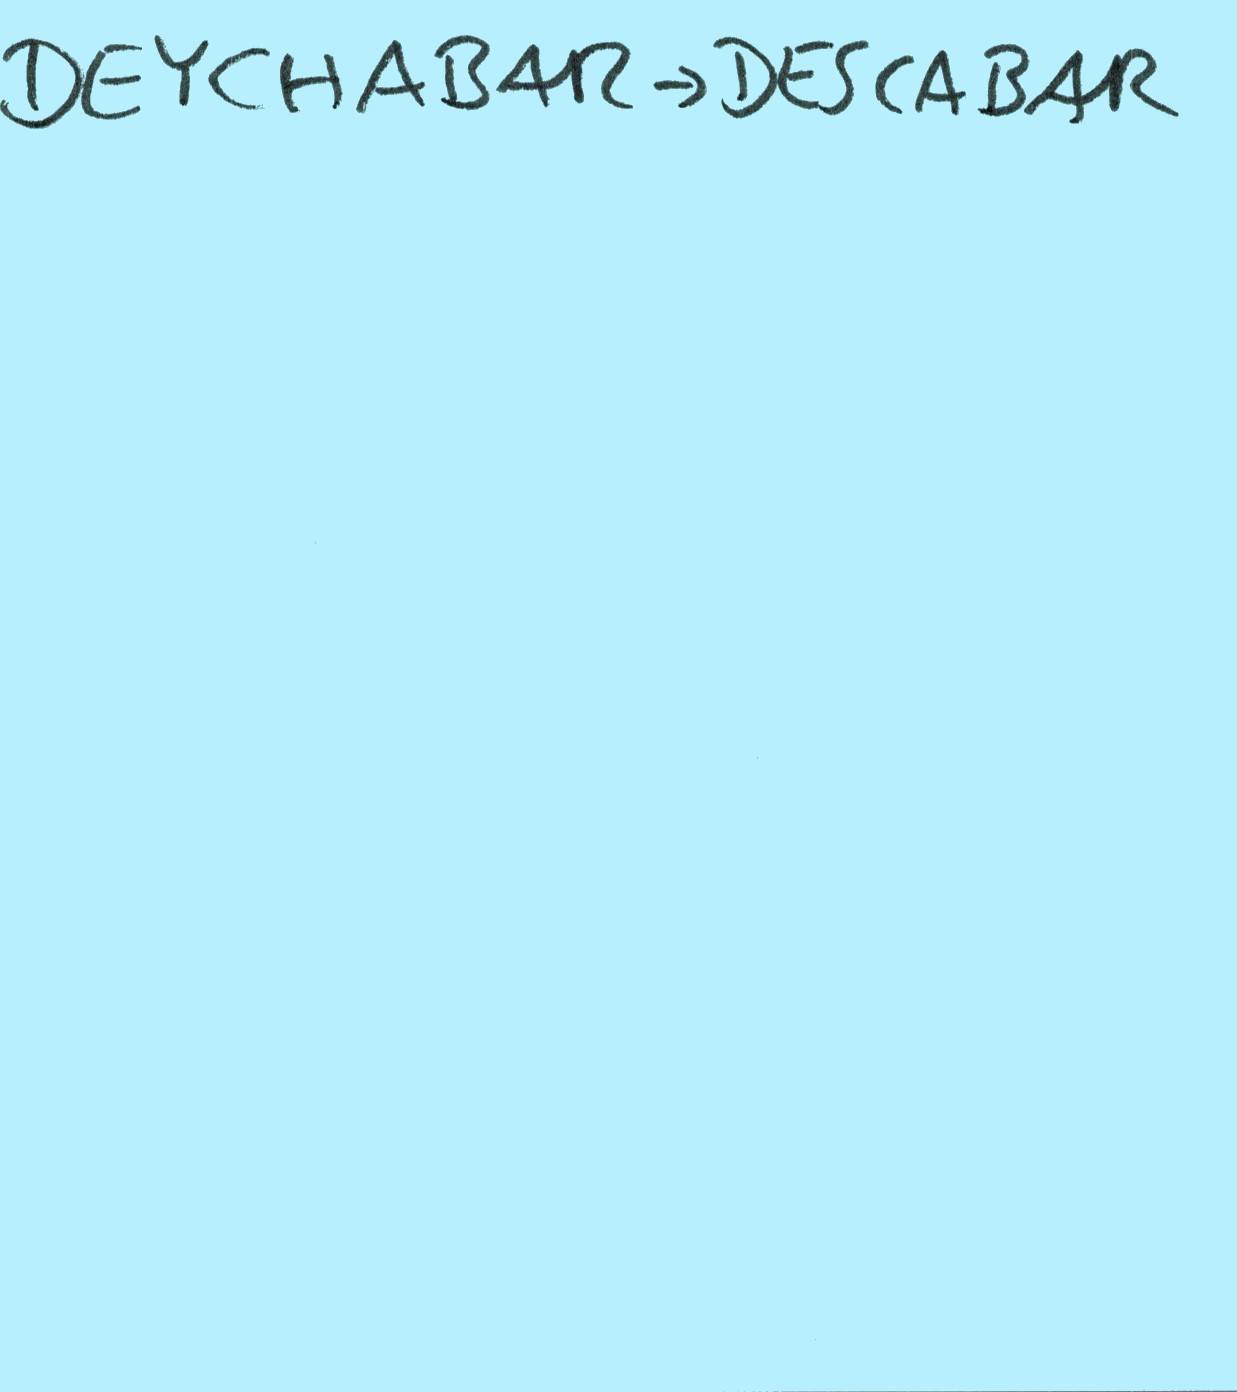 DEYCHABAR → DESCABAR